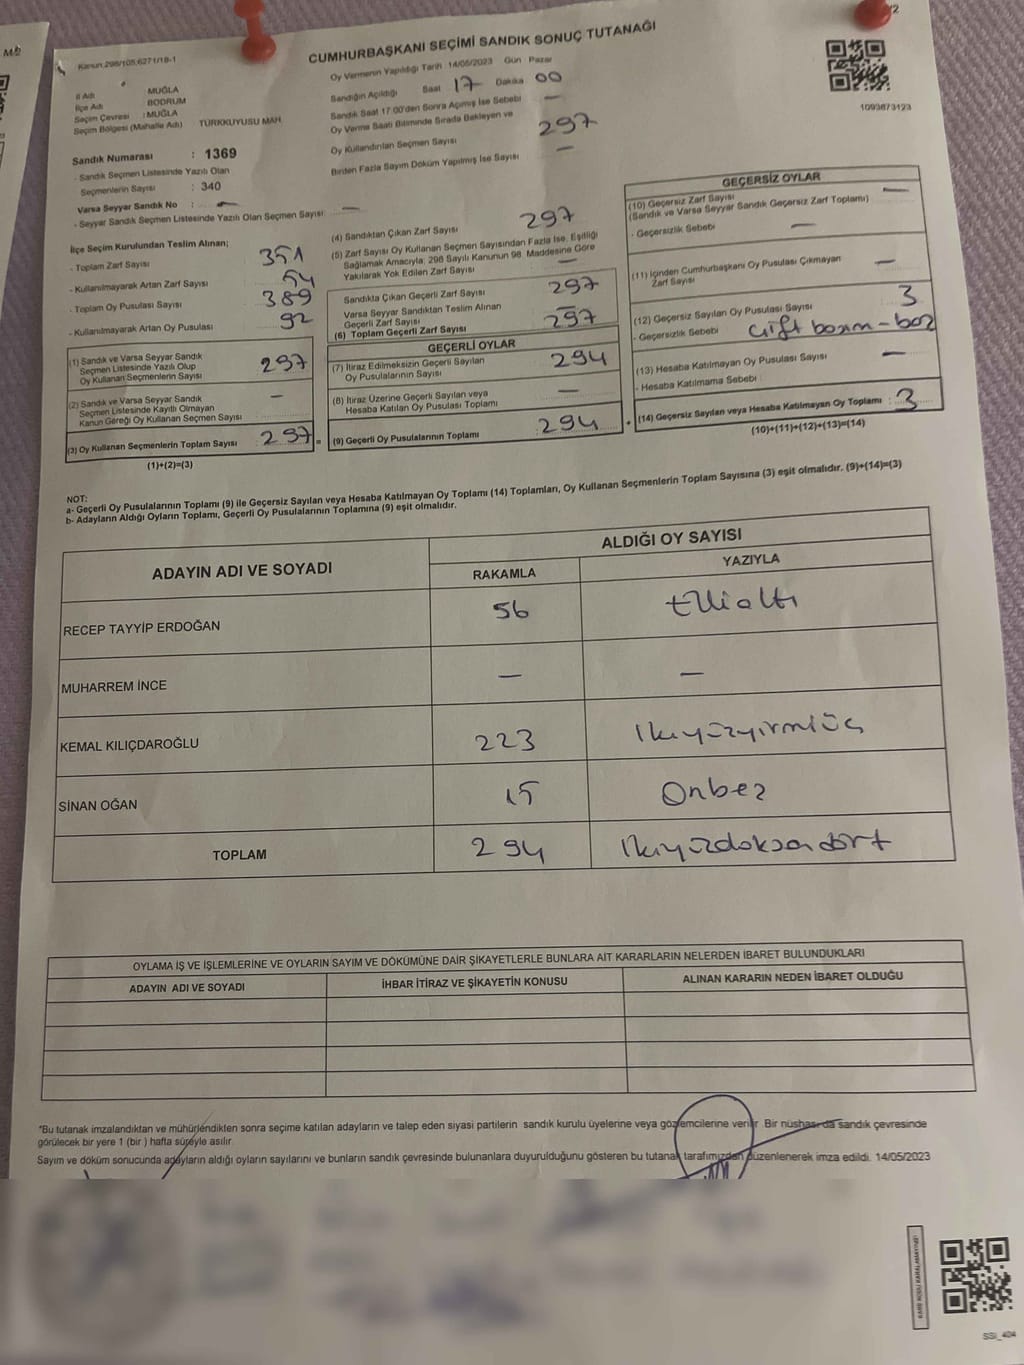 M2
/2
Kanun:298/105;6271/18-1
CUMHURBAŞKANI SEÇİMİ SANDIK SONUÇ TUTANAĞI
İl Adı MUĞLA
İlçe Adı BODRUM
Seçim Çevresi : MUĞLA
Seçim Bölgesi (Mahalle Adı) TÜRKKUYUSU MAH.
Oy Vermenin Yapıldığı Tarih 14/05/2023 Gün Pazar
Sandığın Açıldığı Saat 17 Dakika 00
Sandık Saat 17:00'den Sonra Açılmış İse Sebebi —
Oy Verme Saati Bitiminde Sırada Bekleyen ve
Oy Kullandırılan Seçmen Sayısı 297
Birden Fazla Sayım Döküm Yapılmış İse Sayısı —
1093673123
Sandık Numarası : 1369
- Sandık Seçmen Listesinde Yazılı Olan
Seçmenlerin Sayısı : 340
Varsa Seyyar Sandık No : —
- Seyyar Sandık Seçmen Listesinde Yazılı Olan Seçmen Sayısı —
İlçe Seçim Kurulundan Teslim Alınan;
- Toplam Zarf Sayısı 351
- Kullanılmayarak Artan Zarf Sayısı 54
- Toplam Oy Pusulası Sayısı 389
- Kullanılmayarak Artan Oy Pusulası 92
(1) Sandık ve Varsa Seyyar Sandık
Seçmen Listesinde Yazılı Olup
Oy Kullanan Seçmenlerin Sayısı 297
(2) Sandık ve Varsa Seyyar Sandık
Seçmen Listesinde Kayıtlı Olmayan
Kanun Gereği Oy Kullanan Seçmen Sayısı —
(3) Oy Kullanan Seçmenlerin Toplam Sayısı 297 =
(1)+(2)=(3)
(4) Sandıktan Çıkan Zarf Sayısı 297
(5) Zarf Sayısı Oy Kullanan Seçmen Sayısından Fazla İse, Eşitliği
Sağlamak Amacıyla; 298 Sayılı Kanunun 98. Maddesine Göre
Yakılarak Yok Edilen Zarf Sayısı —
Sandıkta Çıkan Geçerli Zarf Sayısı 297
Varsa Seyyar Sandıktan Teslim Alınan
Geçerli Zarf Sayısı
(6) Toplam Geçerli Zarf Sayısı 297
GEÇERLİ OYLAR
(7) İtiraz Edilmeksizin Geçerli Sayılan
Oy Pusulalarının Sayısı 294
(8) İtiraz Üzerine Geçerli Sayılan veya
Hesaba Katılan Oy Pusulası Toplamı —
(9) Geçerli Oy Pusulalarının Toplamı 294 +
GEÇERSİZ OYLAR
(10) Geçersiz Zarf Sayısı —
(Sandık ve Varsa Seyyar Sandık Geçersiz Zarf Toplamı)
- Geçersizlik Sebebi —
(11) İçinden Cumhurbaşkanı Oy Pusulası Çıkmayan
Zarf Sayısı —
(12) Geçersiz Sayılan Oy Pusulası Sayısı 3
- Geçersizlik Sebebi Çift basım - boş
(13) Hesaba Katılmayan Oy Pusulası Sayısı —
- Hesaba Katılmama Sebebi :
(14) Geçersiz Sayılan veya Hesaba Katılmayan Oy Toplamı : 3
(10)+(11)+(12)+(13)=(14)
NOT:
a- Geçerli Oy Pusulalarının Toplamı (9) ile Geçersiz Sayılan veya Hesaba Katılmayan Oy Toplamı (14) Toplamları, Oy Kullanan Seçmenlerin Toplam Sayısına (3) eşit olmalıdır. (9)+(14)=(3)
b- Adayların Aldığı Oyların Toplamı, Geçerli Oy Pusulalarının Toplamına (9) eşit olmalıdır.
ADAYIN ADI VE SOYADI
ALDIĞI OY SAYISI
RAKAMLA YAZIYLA
RECEP TAYYİP ERDOĞAN 56 Elli altı
MUHARREM İNCE — —
KEMAL KILIÇDAROĞLU 223 İkiyüzyirmiüç
SİNAN OĞAN 15 Onbeş
TOPLAM 294 İkiyüzdoksandört
OYLAMA İŞ VE İŞLEMLERİNE VE OYLARIN SAYIM VE DÖKÜMÜNE DAİR ŞİKAYETLERLE BUNLARA AİT KARARLARIN NELERDEN İBARET BULUNDUKLARI
ADAYIN ADI VE SOYADI İHBAR İTİRAZ VE ŞİKAYETİN KONUSU ALINAN KARARIN NEDEN İBARET OLDUĞU
*Bu tutanak imzalandıktan ve mühürlendikten sonra seçime katılan adayların ve talep eden siyasi partilerin sandık kurulu üyelerine veya gözlemcilerine verilir. Bir nüshası da sandık çevresinde
görülecek bir yere 1 (bir ) hafta süreyle asılır.
Sayım ve döküm sonucunda adayların aldığı oyların sayılarını ve bunların sandık çevresinde bulunanlara duyurulduğunu gösteren bu tutanak tarafımızdan düzenlenerek imza edildi. 14/05/2023
SSI_404